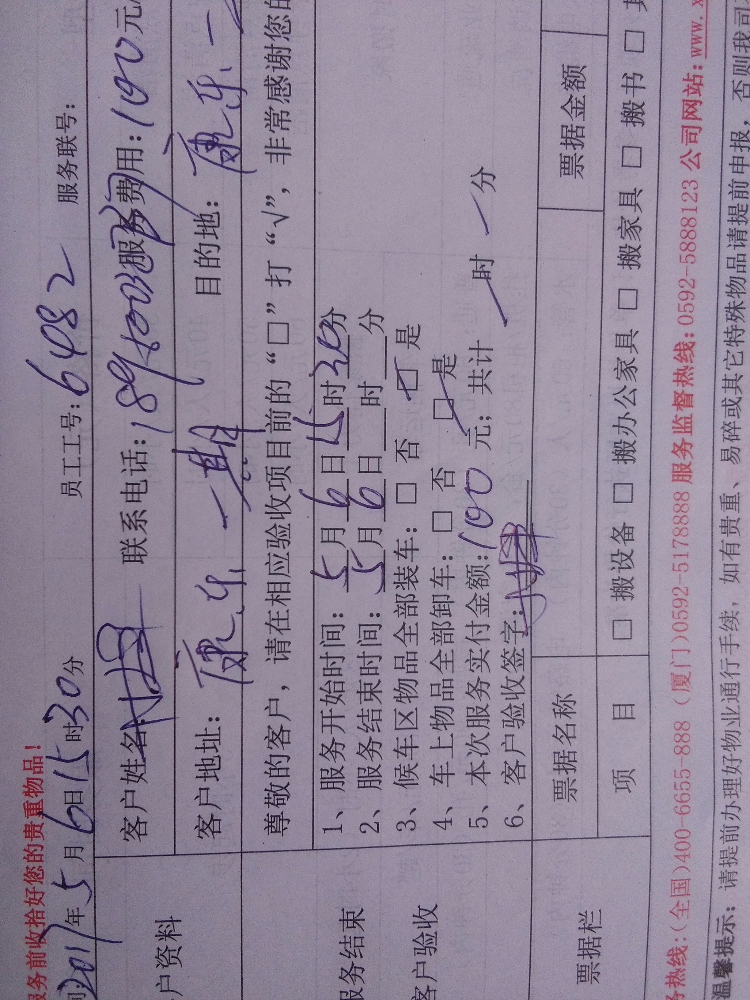 服务前收拾好您的贵重物品!
2017年5月6日15时30分 员工工号:6482 服务联号:
客户资料
客户姓名: 联系电话: 服务费用:100元
客户地址:康乐一期 目的地:康乐一
尊敬的客户,请在相应验收项目前的“□”打“√”,非常感谢您的
服务结束
客户验收
1、服务开始时间:5月6日15时30分
2、服务结束时间:5月6日 时 分
3、候车区物品全部装车:□ 否 ☑ 是
4、车上物品全部卸车:□ 否 ☑ 是
5、本次服务实付金额:100元;共计 时 分
6、客户验收签字:
票据栏
票据名称 票据金额
项 目 □ 搬设备 □ 搬办公家具 □ 搬家具 □ 搬书 □
务热线:(全国)400-6655-888 (厦门)0592-5178888 服务监督热线:0592-5888123 公司网站:www.x
温馨提示:请提前办理好物业通行手续,如有贵重、易碎或其它特殊物品请提前申报,否则我司